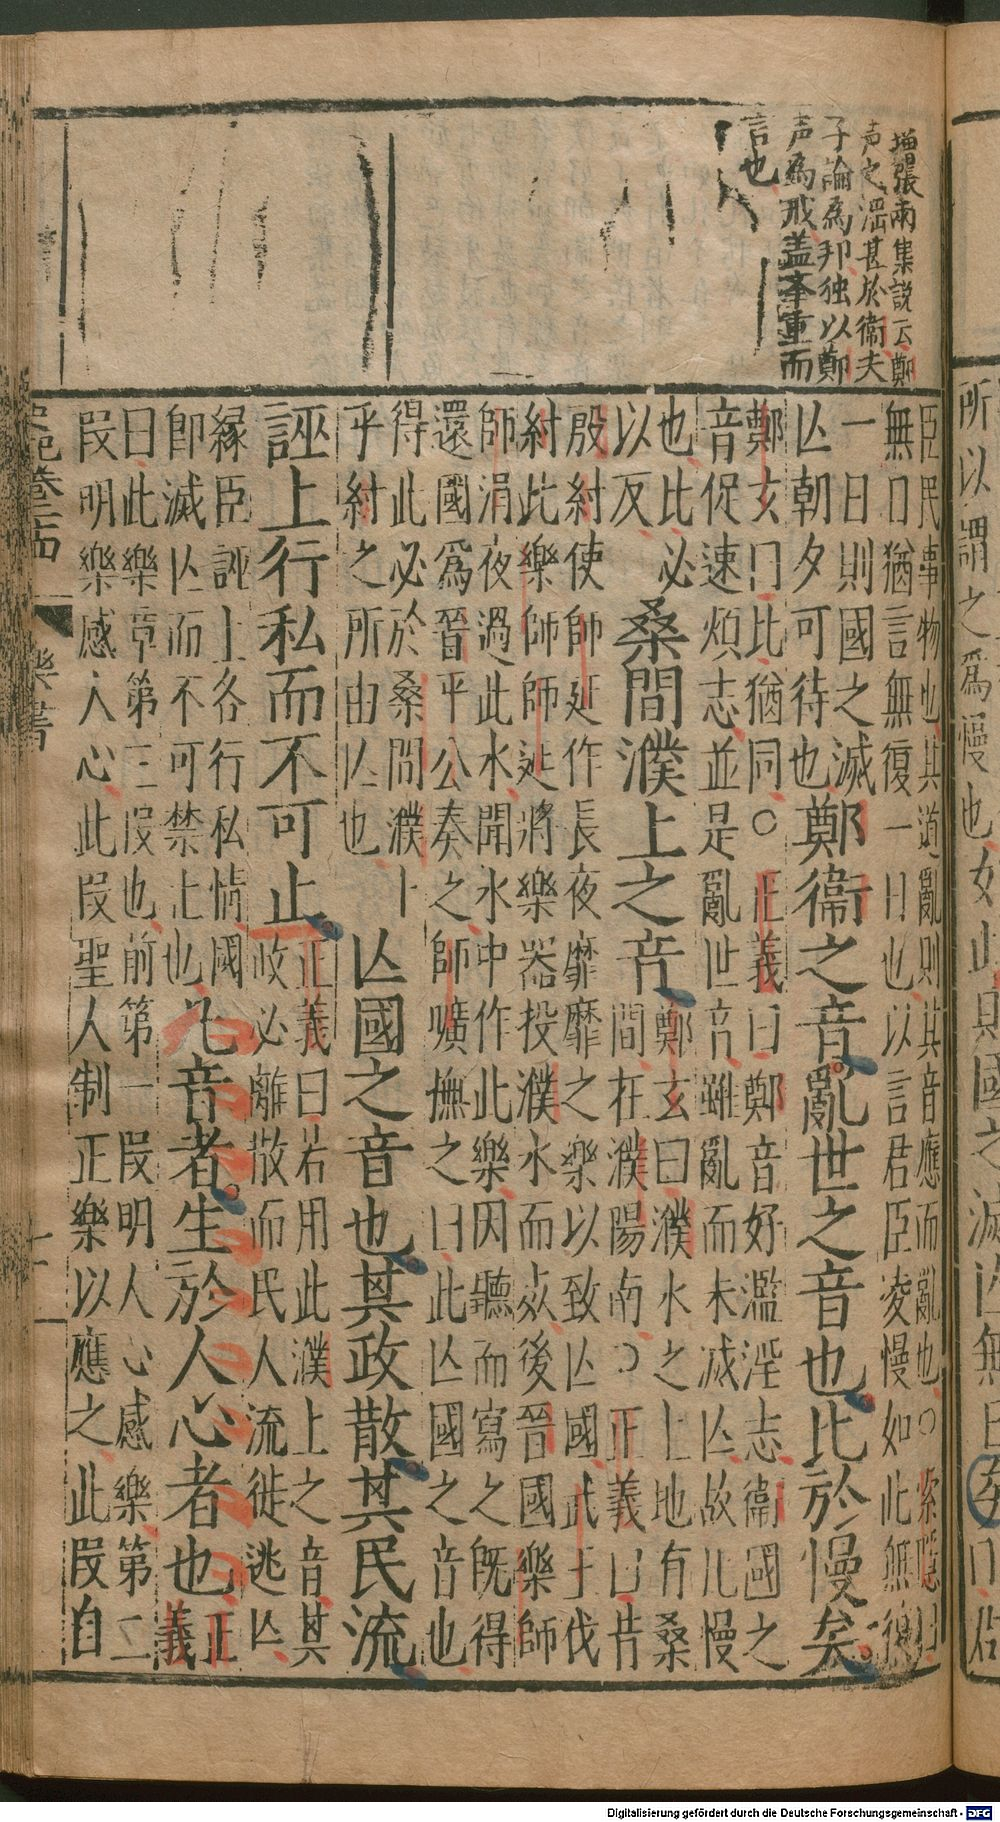 增張南集説云鄭
声之滛甚於衞夫
子論為邦独以鄭
声為戒盖本重而
言也
臣民事物也其道亂則其音應而亂也○索隱曰
無日猶言無復一日也以言君臣凌慢如此無復
一日則國之滅
亾朝夕可待也鄭衞之音亂世之音也比於慢矣
鄭玄曰比猶同○正義曰鄭音好濫淫志衞國之
音促速煩志並是亂世之音雖亂而未滅亾故比慢
也比必
以反桑間濮上之音鄭玄曰濮水之上地有桑
間在濮陽南○正義曰昔
殷紂使師延作長夜靡靡之樂以致亾國武王伐
紂此樂師師延將樂器投濮水而死後晉國樂師
師涓夜過此水聞水中作此樂因聽而寫之既得
還國爲晉平公奏之師曠撫之曰此亾國之音也
得此必於桑間濮上
乎紂之所由亾也亾國之音也其政散其民流
誣上行私而不可止正義曰若用此濮上之音其
政必離散而民人流徙逃亾
縁臣誣上各行私情國
即滅亾而不可禁止也凡音者生於人心者也正
義
曰此樂章第三叚也前第一叚明人心感樂第二
叚明樂感人心此叚聖人制正樂以應之此叚自
史記卷二十四
樂書
十一
所以謂之爲慢也如此則國之滅亾無日矣
Digitalisierung gefördert durch die Deutsche Forschungsgemeinschaft - DFG